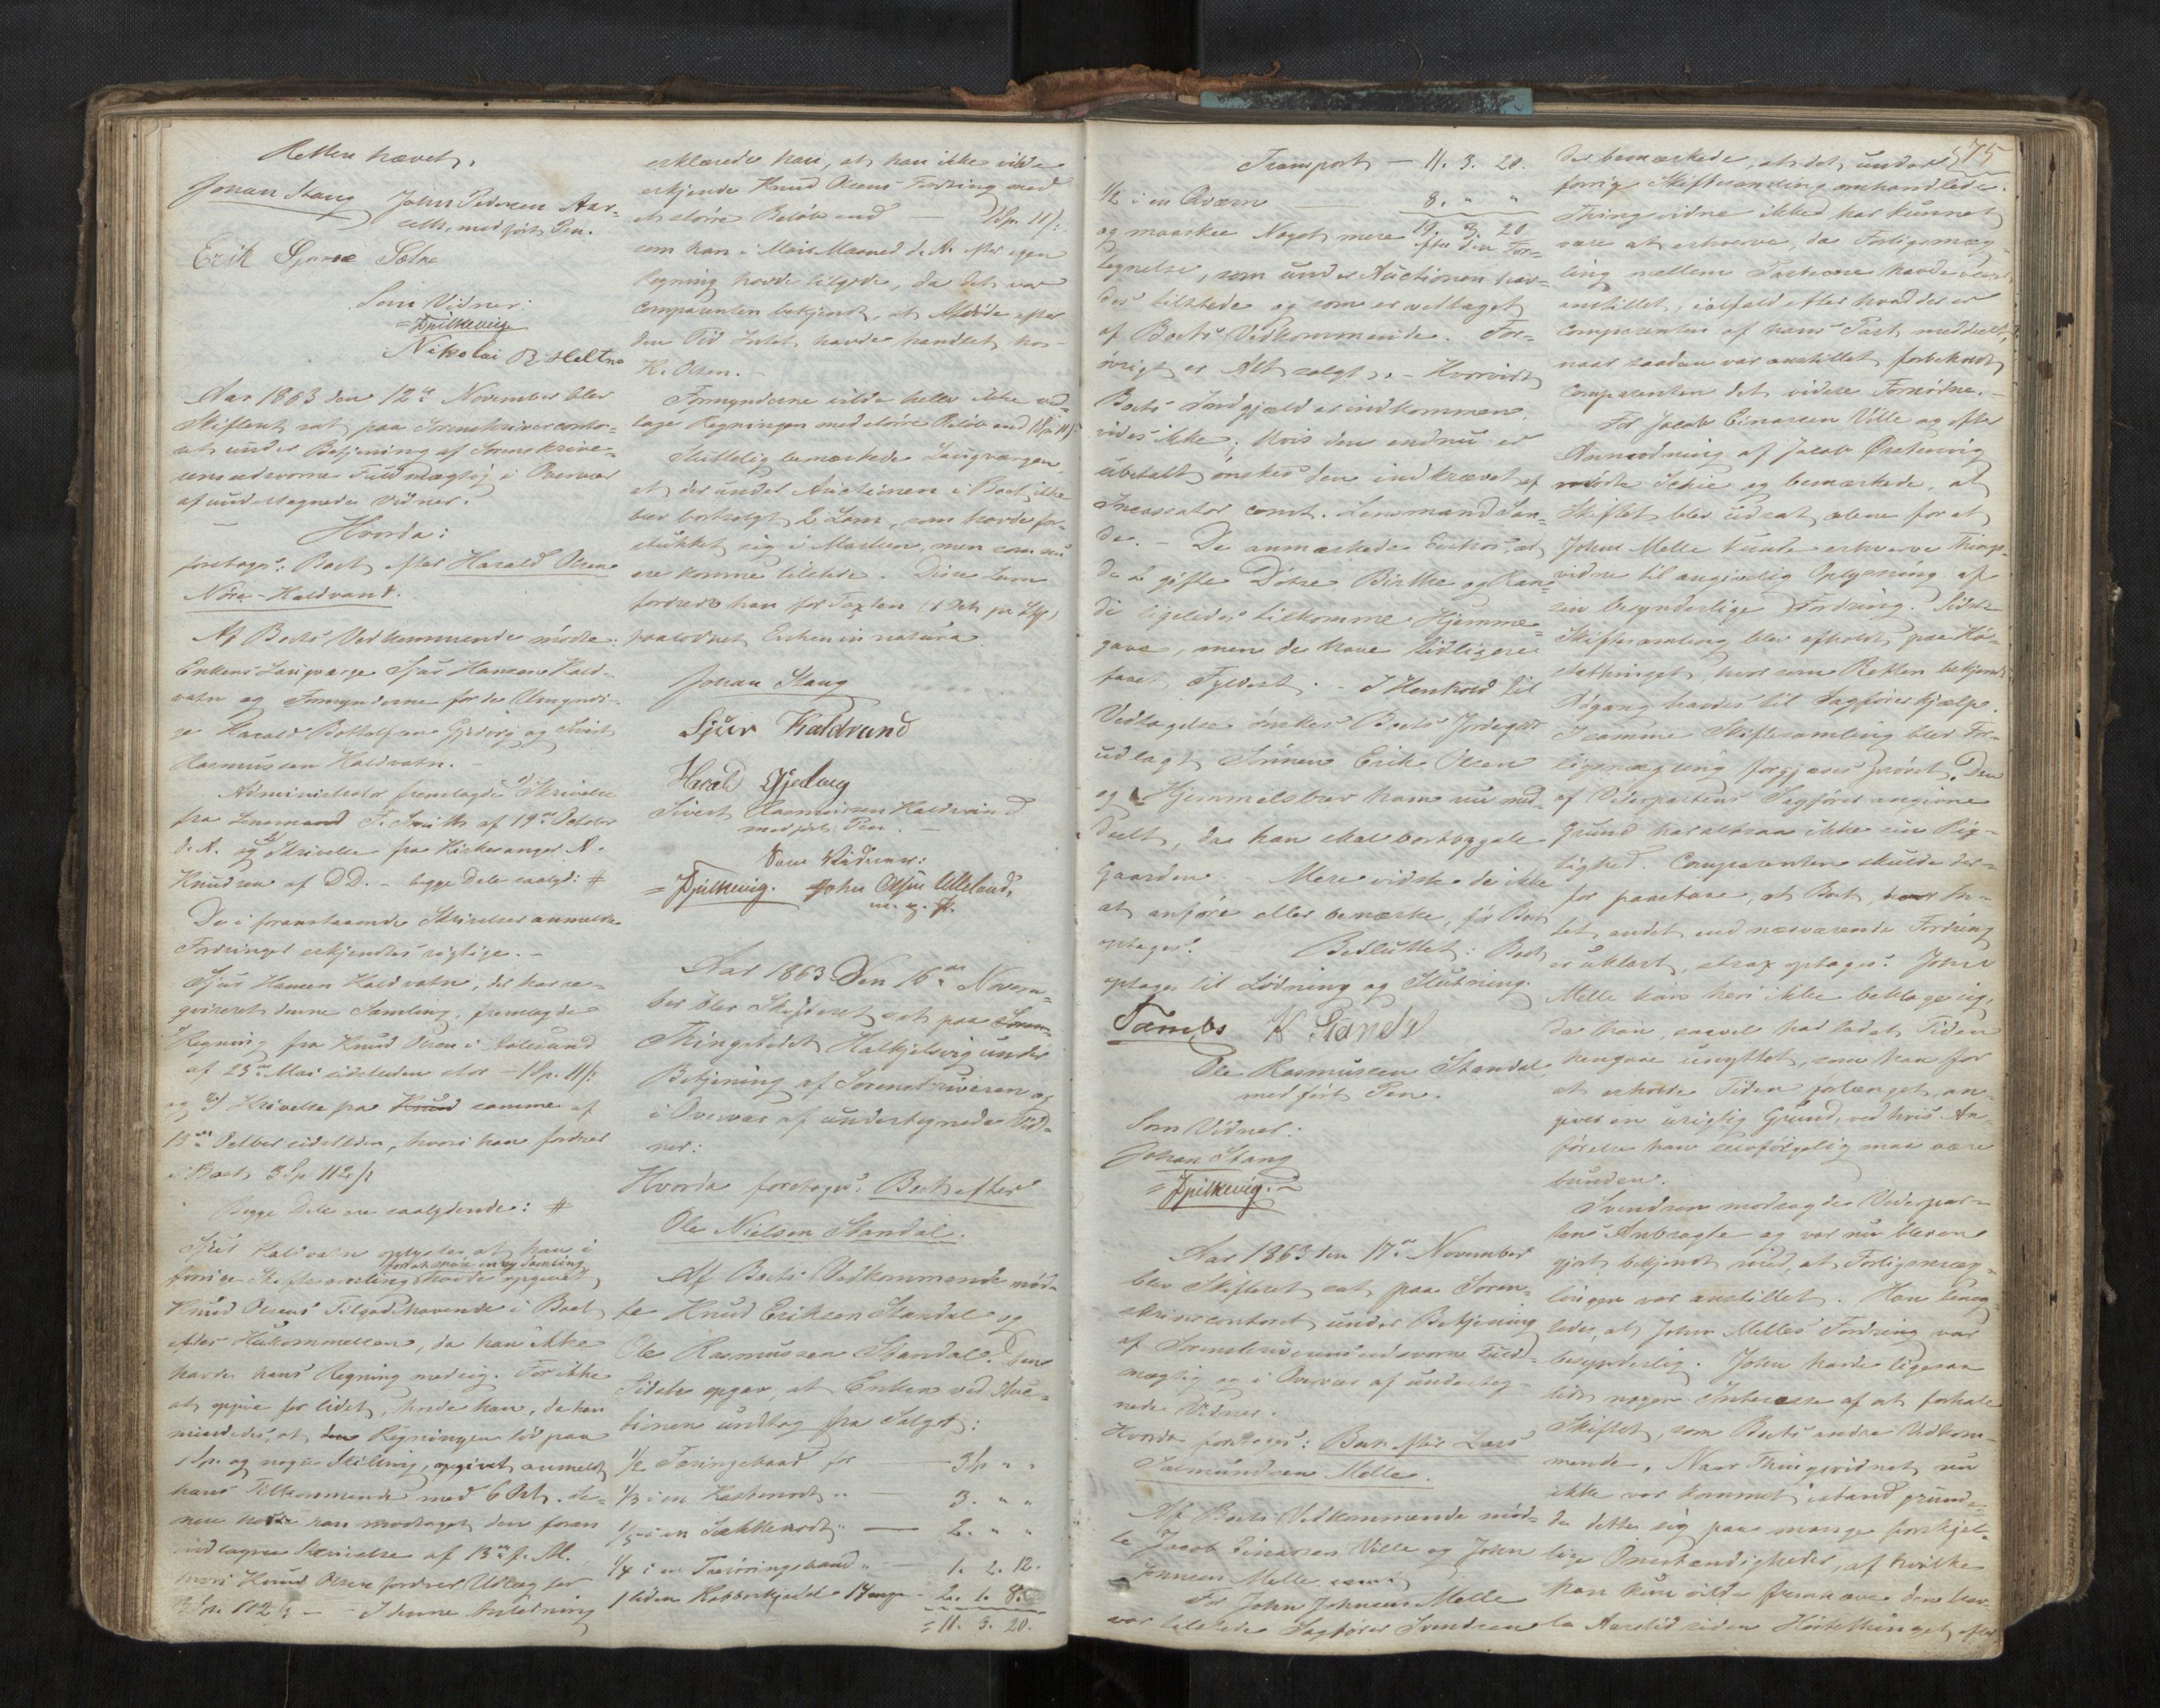 Retten hævet,
Johan Stang John Pedersen Aar-
seth, med ført Pen.
Erik Sætre
Som Vidner:
Spilkevig
Nikolai R. Heltne
Aar 1863 den 12te November blev
Skifteret sat paa Sorenskrivercontor-
et under Betjening af Sorenskrive-
rens edsvorne Fuldmægtig i Overvær
af undertegnede Vidner.
Hvorda:
foretoges: Boet efter Harald Olsen
Nöre-Kaldvand.
Af Boets Vedkommende mödte:
Enkens Laugværge Sjur Hansen Kald-
vatn og Formynderne for de Umyndi-
ge Harald Bottolfsen Gjedöig og Sivert
Rasmussen Kaldvatn. -
Administrator fremlagde 1) Skrivelse
fra Lensmand F. Smith af 19de October
d. A. og 2) Skrivelse fra Kirkesanger A.
Knudsen af D D. - begge Dele saalyd: #
De i foranstaaende Skrivelser anmeldte
Fordringer erkjendtes rigtige. -
Sjur Hansen Kaldvatn, der har re-
qvireret denne Samling, fremlagde
Regning fra Knud Olsen i Aalesund
af 25de Mai sidstleden stor - 1 Sp. 11 ß
og 2) Skrivelse fra Knud samme af
13de October sidstleden, hvori han fordrer
i Boet 3 Sp 112 ß
Begge Dele ere saalydende: #
Sjur Kaldvatn oplyste, at han i
forat spare en ny Samling
forrige Skiftesamling havde opgivet
Knud Olsens Tilgodehavende i Boet
efter Hukommelsen, da han ikke
havde hans Regning med sig. For ikke
at opgive for lidet, havde han, da han
mindedes, at den Regningen löd paa
1 Sp. og nogle Skilling, opgivet, anmeldt
hans Tilkommende med 6 Ort. Se-
nere havde han modtaget den foran
indtagne Skrivelse af 13de f. M.
hvori Knud Olsen fordrer Udlæg for
3 Sp. 112 ß - I denne Anledning
erklærede han, at han ikke vilde
erkjende Knud Olsens Fordring med
et större Beløb end - 1 Sp. 11 ß.
som han i Mai Maaned d. A. efter egen
Regning havde tilgode, da det var
Comparenten bekjendt, at Afdöde efter
den Tid Intet havde handlet hos
K. Olsen. -
Formynderne vilde heller ikke ved-
tage Regningen med större Beløb end 1 Sp. 11 ß
Sluttelig bemærkede Laugværgen,
at der under Auctionen i Boet ikke
blev bortsolgt 2 Lam, som havde for-
stukket sig i Marken, men som nu
ere komne tilstede. Disse Lam
fordrede han for Taxten (1 Ort pr Stk)
paalodnet Enken in natura.
Johan Stang
Sjur Kaldvand
Harald Gjedöig
Sivert Rasmussen Kaldvand
med ført Pen. -
Som Vidner:
Spilkevig. John Olsen Ulleland,
m. f. P.
Aar 1863 Den 16de Novem-
ber blev Skifteret sat paa Soren-
Thingstedet Halkjelsvig under
Betjening af Sorenskriveren og
i Overvær af undertegnede Vid-
ner:
Hvorda foretoges: Boet efter
Ole Nielsen Standal.
Af Boets Vedkommende möd-
te Knud Eriksen Standal og
Ole Rasmussen Standal. Den
Sidste opgav, at Enken ved Auc-
tionen undtog fra Salget:
1/2 Færingsbaad for - 3 Sp " "
1/3 i en Kastenodt " - 3. " "
1/5 i en Sættenodt " - 2. " "
1/4 i en Treröringsbaad " - 1. 2. 12.
1 liden Kobberkjedel 14 mgr - 2. 1. 8.
= 11. 3. 20.
Transport - 11. 3. 20.
1/2 i en Qværn - 8. " "
19. 3. 20
og maaskee Noget mere efter den For-
tegnelse, som under Auctionen hav-
des tilstede og som er vedtaget
af Boets Vedkommende. For-
övrigt er Alt solgt. - Hvorvidt
Boets Indgjæld er indkommen,
vides ikke; Hvis den endnu er
ubetalt, önskes den indkrævet af
Incassator const. Lensmand San-
de. - De anmærkede Enkens, at
de 2 gifte Dötre Birthe og Ran-
di ligeledes tilkomme Hjemme-
gave, men de have tidligere
faaet Fyldest. - I Henhold til
Vedtagelse önskes Boets Jordegods
udlagt Sönnen Erik Olsen
og Hjemmelsbrev ham nu med-
deelt, da han skal bortbygsle
Gaarden - Mere vidste de ikke
at anföre eller bemærke, för Boet
optoges. Besluttet: Boet
optages til Lodning og Slutning.
Tambs K Standal
Ole Rasmussen Standal
med fört Pen.
Som Vidner:
Johan Stang
Spilkevig.
Aar 1863 den 17de November
blev Skifteret sat paa Soren-
skrivercontoret under Betjening
af Sorenskriverens edsvorne Fuld-
mægtig og i Overvær af underteg-
nede Vidner.
Hvorda foretoges: Boet efter Lars
Salmundsen Melle.
Af Boets Vedkommende möd-
te Jacob Einarsen Ville og John
Johnsen Melle samt
For John Johnsen Melle
var tilstede Sagförer Svendsen
575
Der bemærkede, at det under
forrige Skiftesamling omhandlede
Thingsvidne ikke har kunnet
være at erhverve, da Forligsmæg-
ling mellem Parterne havde været
anstillet, ialfald efter hvad der er
Comparenten af hans Part meddeelt,
naar saadan var anstillet forbeholdt
Comparenten det videre Fornödne. -
For Jacob Einarsen Ville og efter
Anmodning af Jacob
mödte og bemærkede, at
Skiftet blev udsat alene for at
John Melle kunde erhverve Things-
vidne til angivelig Oplysning af
sin besynderlige Fordring. Sidste
Skiftesamling blev afholdt paa Hö-
stethinget, hvor som Retten bekjendt
Adgang havdes til Sagförerhjælp.
I samme Skiftesamling blev For-
ligsmægling forgjæves prövet. Den
af Vederpartens Sagförer angivne
Grund har altsaa ikke sin Rig-
tighed. Comparenten skulde der-
for paastaae, at Boet, hvor In-
tet andet end nærværende Fordring
er uklart, strax optages. John
Melle kan heri ikke beklage sig,
da han, saavel har ladet Tiden
hengaae unyttet, som han for
at erholde Tiden forlænget, an-
giver en urigtig Grund, ved hvis An-
förelse han selvfölgelig maa være
bunden.
Svendsen modsagde Vederpar-
tens Anbragte og var nu bleven
gjort bekjendt med, at Forligsmæg-
lingen var anstillet. Han benæg-
tede, at John Melles Fordring var
besynderlig. John havde ligesaa
lidt nogen Interesse af at forhale
Skiftet, som Boets andre Vedkom-
mende. Naar Thingsvidnet nu
ikke var kommet istand, grunde-
de dette sig paa mange forskjel-
lige Omstændigheder, af hvilke
han kun vilde fremhæve den kor-
te Aarstid siden Höstethinget, efter